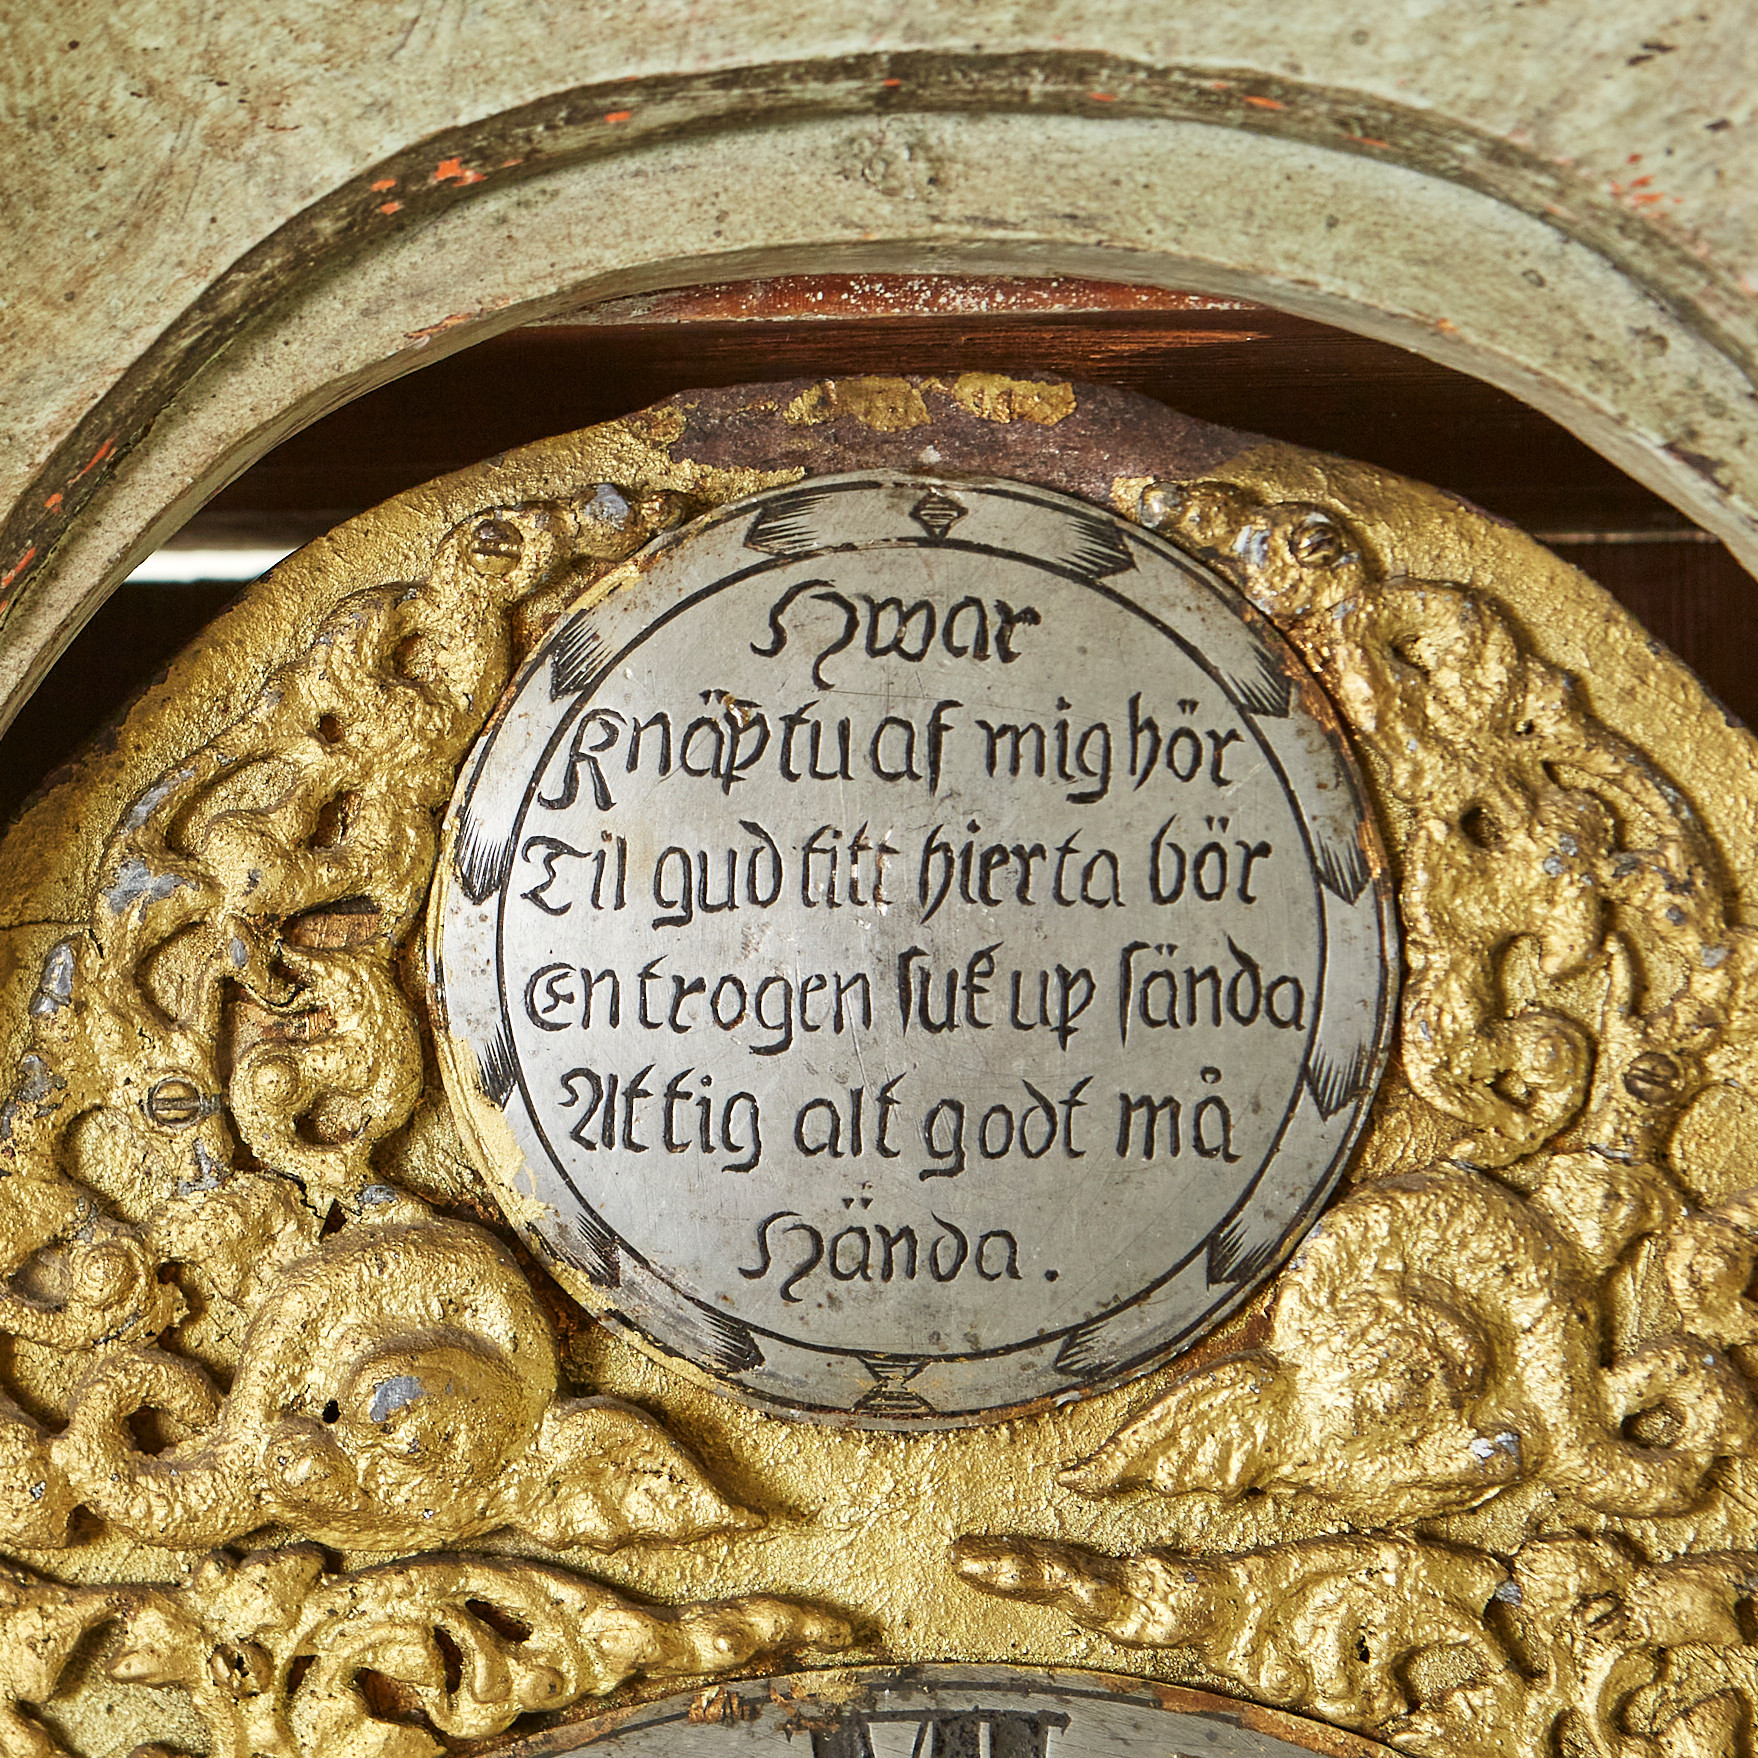 Hwar
Knäp tu af mig hör
Til gud titt hierta bör
En trogen suk up sända
At tig alt godt må
Hända.
VII